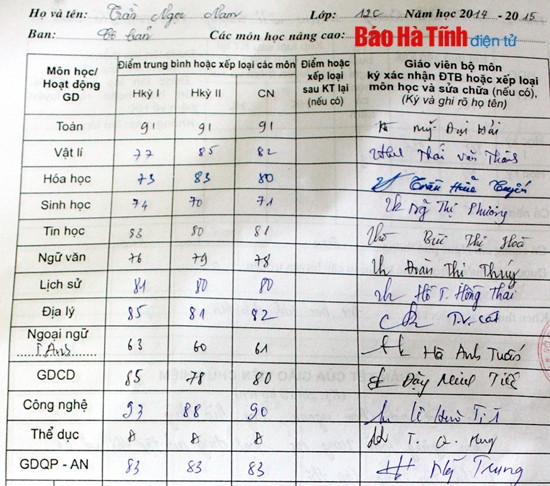 Họ và tên: Trần Ngọc Nam Lớp: 12C Năm học 2014 - 2015
Ban: Cơ bản Các môn học nâng cao: Báo Hà Tĩnh điện tử
Môn học/ Hoạt động GD
Điểm trung bình hoặc xếp loại các môn
Hkỳ I Hkỳ II CN
Điểm hoặc xếp loại sau KT lại (nếu có)
Giáo viên bộ môn ký xác nhận ĐTB hoặc xếp loại môn học và sửa chữa (nếu có), (Ký và ghi rõ họ tên)
Toán 91 91 91
Vật lí 77 85 82 Thái Văn
Hóa học 73 83 80 Trần
Sinh học 74 70 71 Thị Phương
Tin học 83 80 81 Thị Hoà
Ngữ văn 76 79 78 Đoàn Thị Thúy
Lịch sử 81 80 80 Hồ T. Hồng Thái
Địa lý 85 81 82
Ngoại ngữ T.Anh 63 60 61 Hà Anh Tuấn
GDCD 85 78 80
Công nghệ 93 88 90
Thể dục 8 8 8
GDQP - AN 83 83 83 Trung